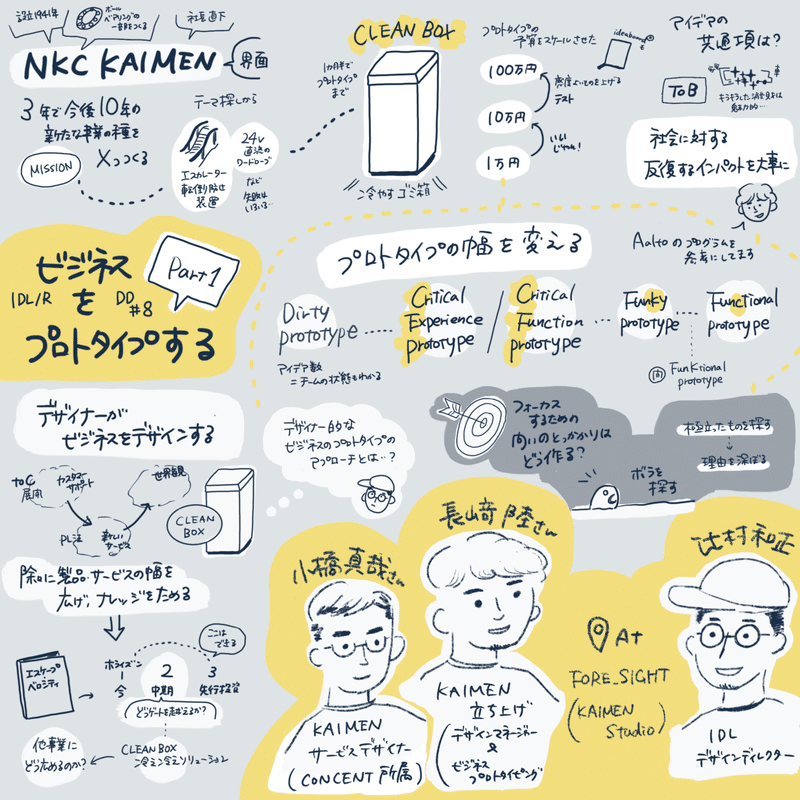 設立1941年
ボール
ベアリングの
一部をつくる
社長直下
NKC KAIMEN
界面
3年で今後10年の
新たな事業の種を
Xつつくる
MISSION
テーマ探しから
エスカレーター
転倒防止
装置
24V
直流の
ワードローブ
など
失敗は
いろいろ…
CLEAN BOX
1ヵ月半で
プロトタイプ
まで
冷やすゴミ箱
プロトタイプの
予算をスケールさせた
ideaboard®
100万円
10万円
1万円
テスト
いい
じゃん!
アイデアの
共通項は?
ToB
社会に対する
反復するインパクトを大事に
Aaltoのプログラムを
参考にしてます
ビジネス
を
プロトタイプする
IDL/R
DD
#8
Part1
プロトタイプの幅を変える
Dirty
prototype
Critical
Experience
prototype
/
Critical
Function
prototype
Funky
prototype
Functional
prototype
アイデア数
=チームの状態もわかる
Funktional
prototype
デザイナーが
ビジネスをデザインする
toC
展開
カスタマー
サポート
世界観
PL法
新しい
サービス
CLEAN
BOX
徐々に製品・サービスの幅を
広げ、ナレッジをためる
エスケープ
ベロシティ
ホライズン
今
2
中期
3
先行投資
ここは
できる
どうゲートを越えるか?
他事業に
どうためるのか?
CLEAN BOX
デザイナー的な
ビジネスのプロトタイプの
アプローチとは…?
フォーカス
するための
問いのとっかかりは
どう作る?
ボラを
探す
極立ったものを探す
理由を深ぼる
小橋真哉さん
長﨑陸さん
辻村和正
KAIMEN
サービスデザイナー
(CONCENT所属)
KAIMEN
立ち上げ
デザインマネージャー
&
ビジネス
プロトタイピング
At
FORE_SIGHT
(KAIMEN
Studio)
IDL
デザインディレクター